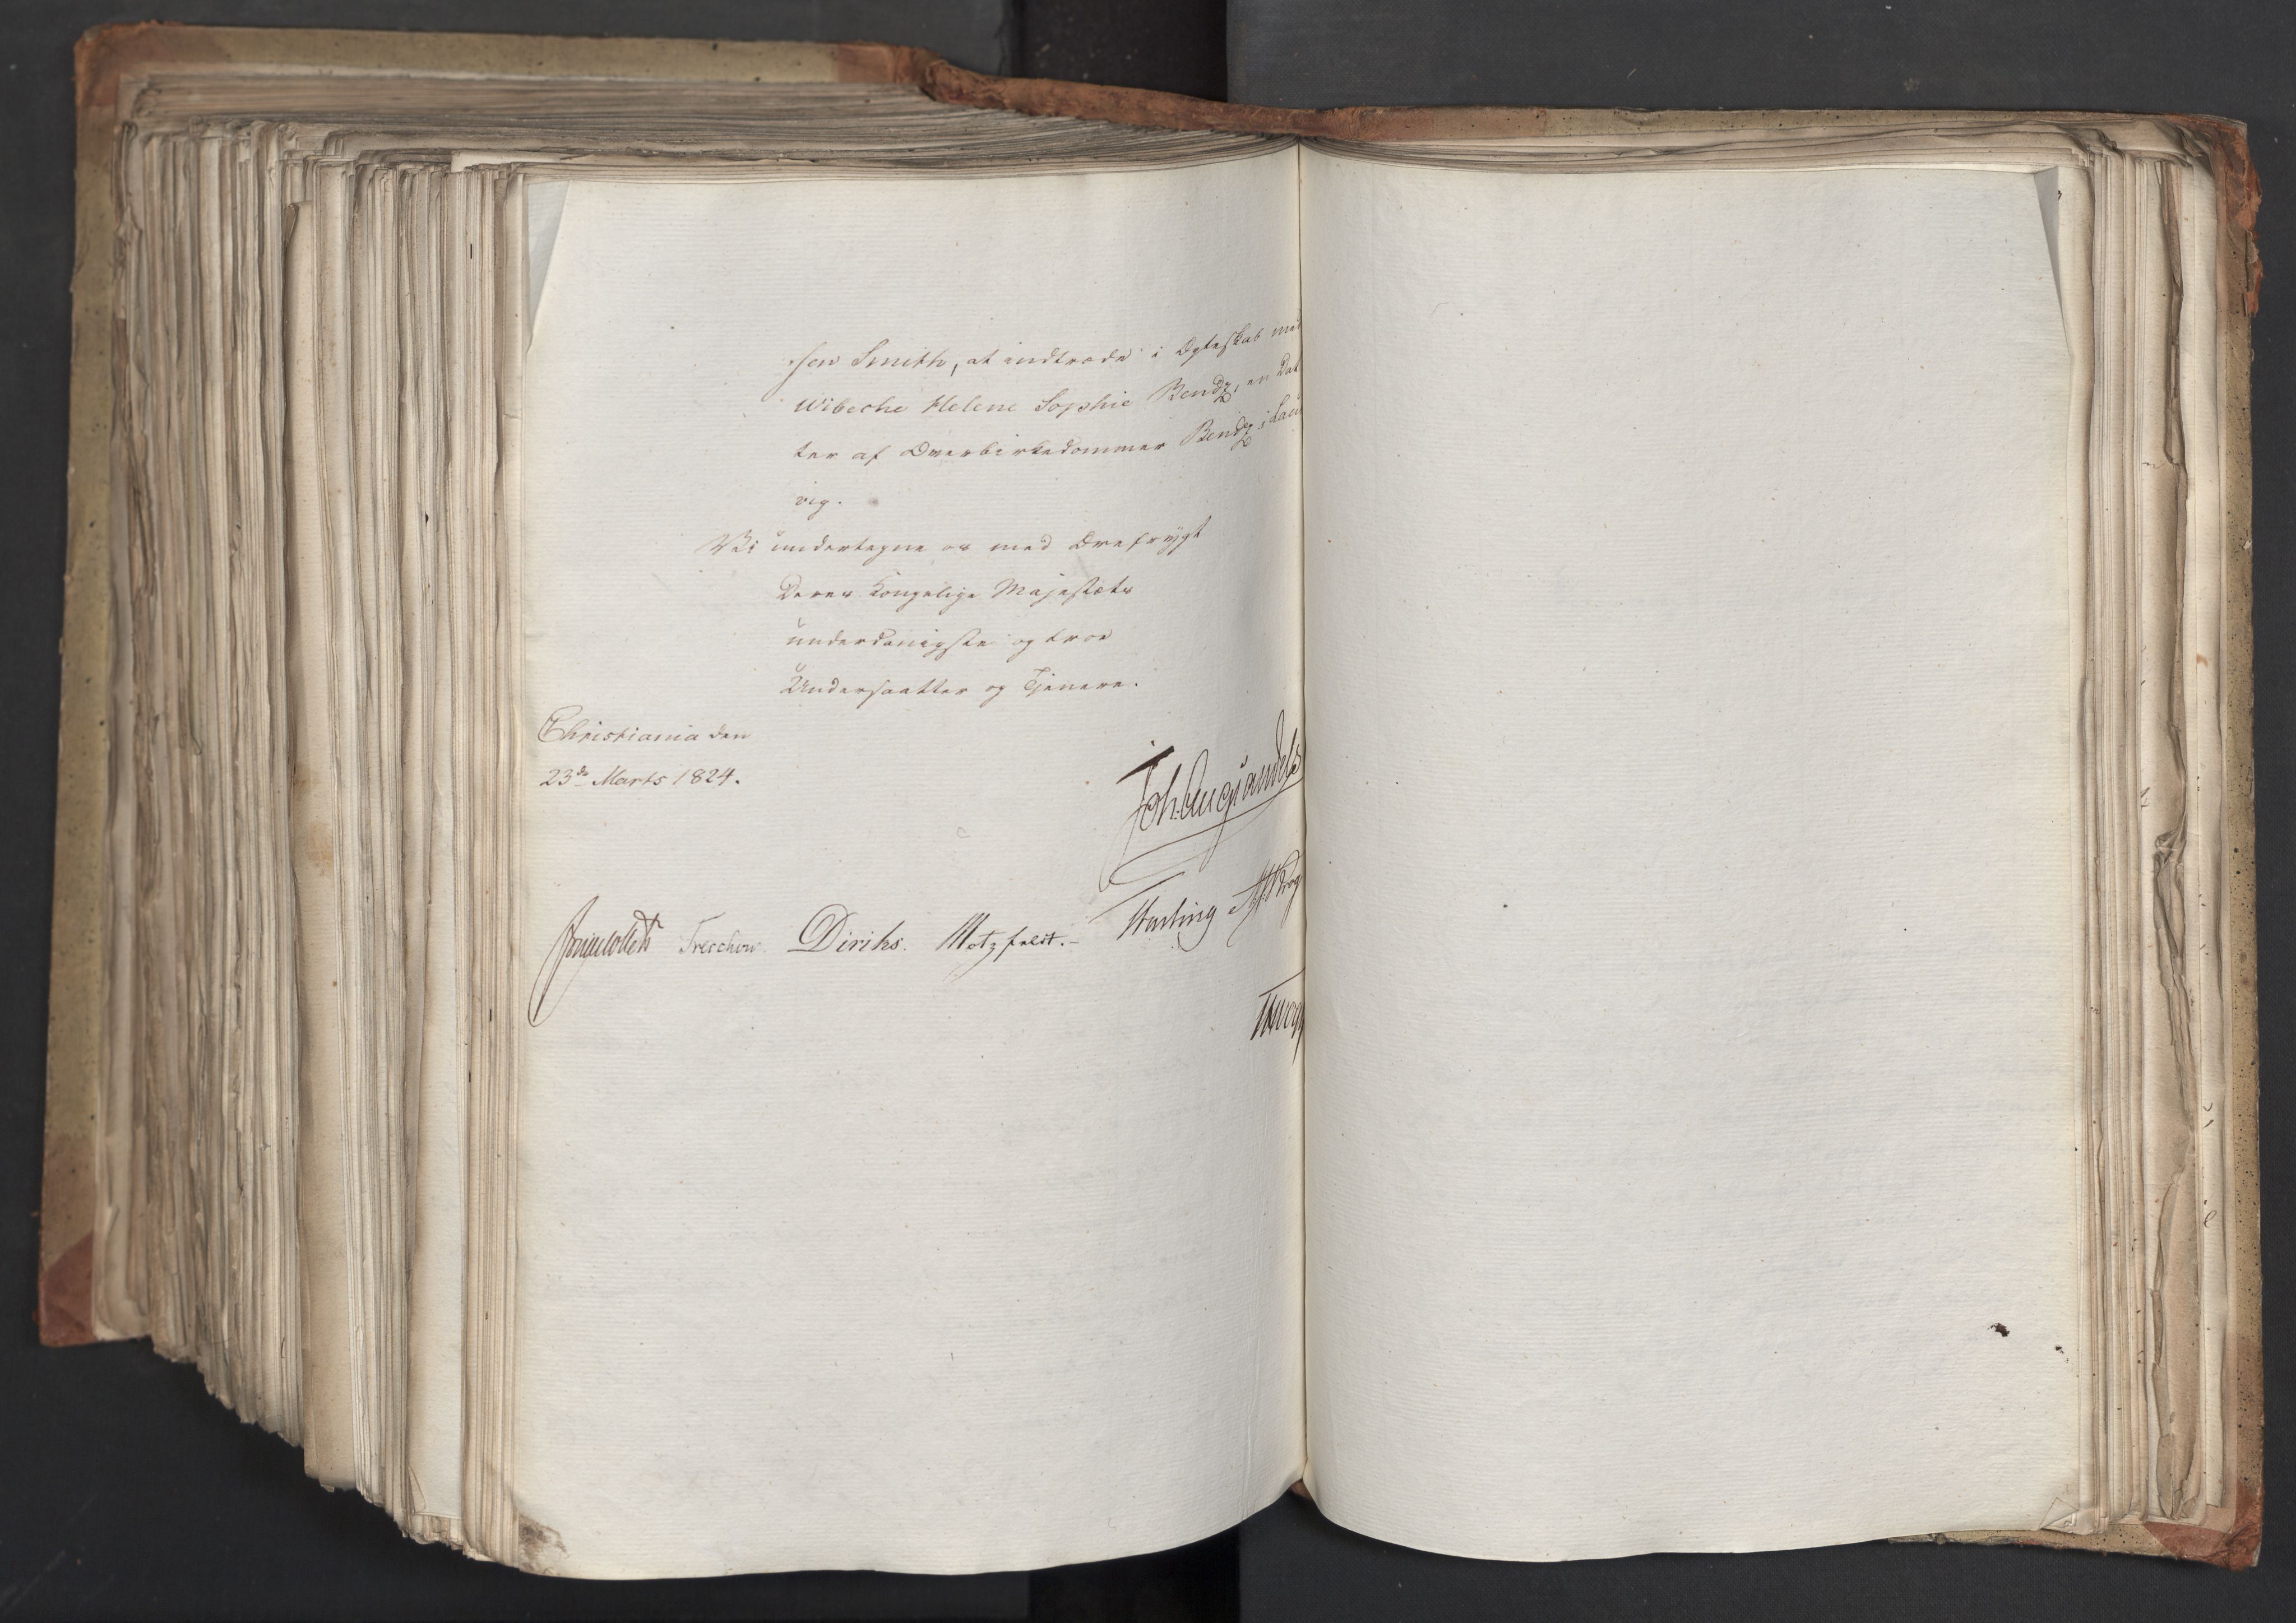 sen Smith, at indtræde i Ægteskab med
Wibeche Helene Sophie Bendz, en Dat
ter af Overbirkedommer Bendz i Laur
vig.
Vi undertegne os med Ærefrygt
Deres Kongelige Majestæts
underdanigste og troe
Undersaatter og Tjenere.
Christiania den
23de Marts 1824.
Joh. Aug. Sandels
Jonas Collett Treschow. Diriks. Motzfeldt.- Fasting M. Krog